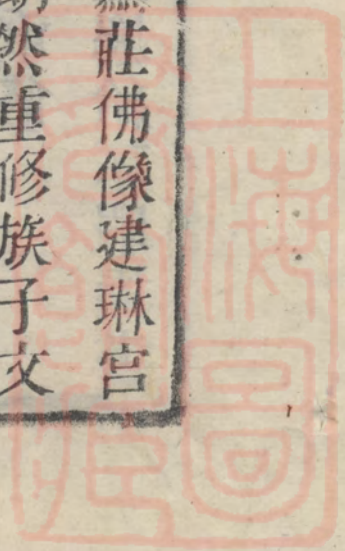 莊佛像建琳宮
然重修族子文
上海圖
書館藏